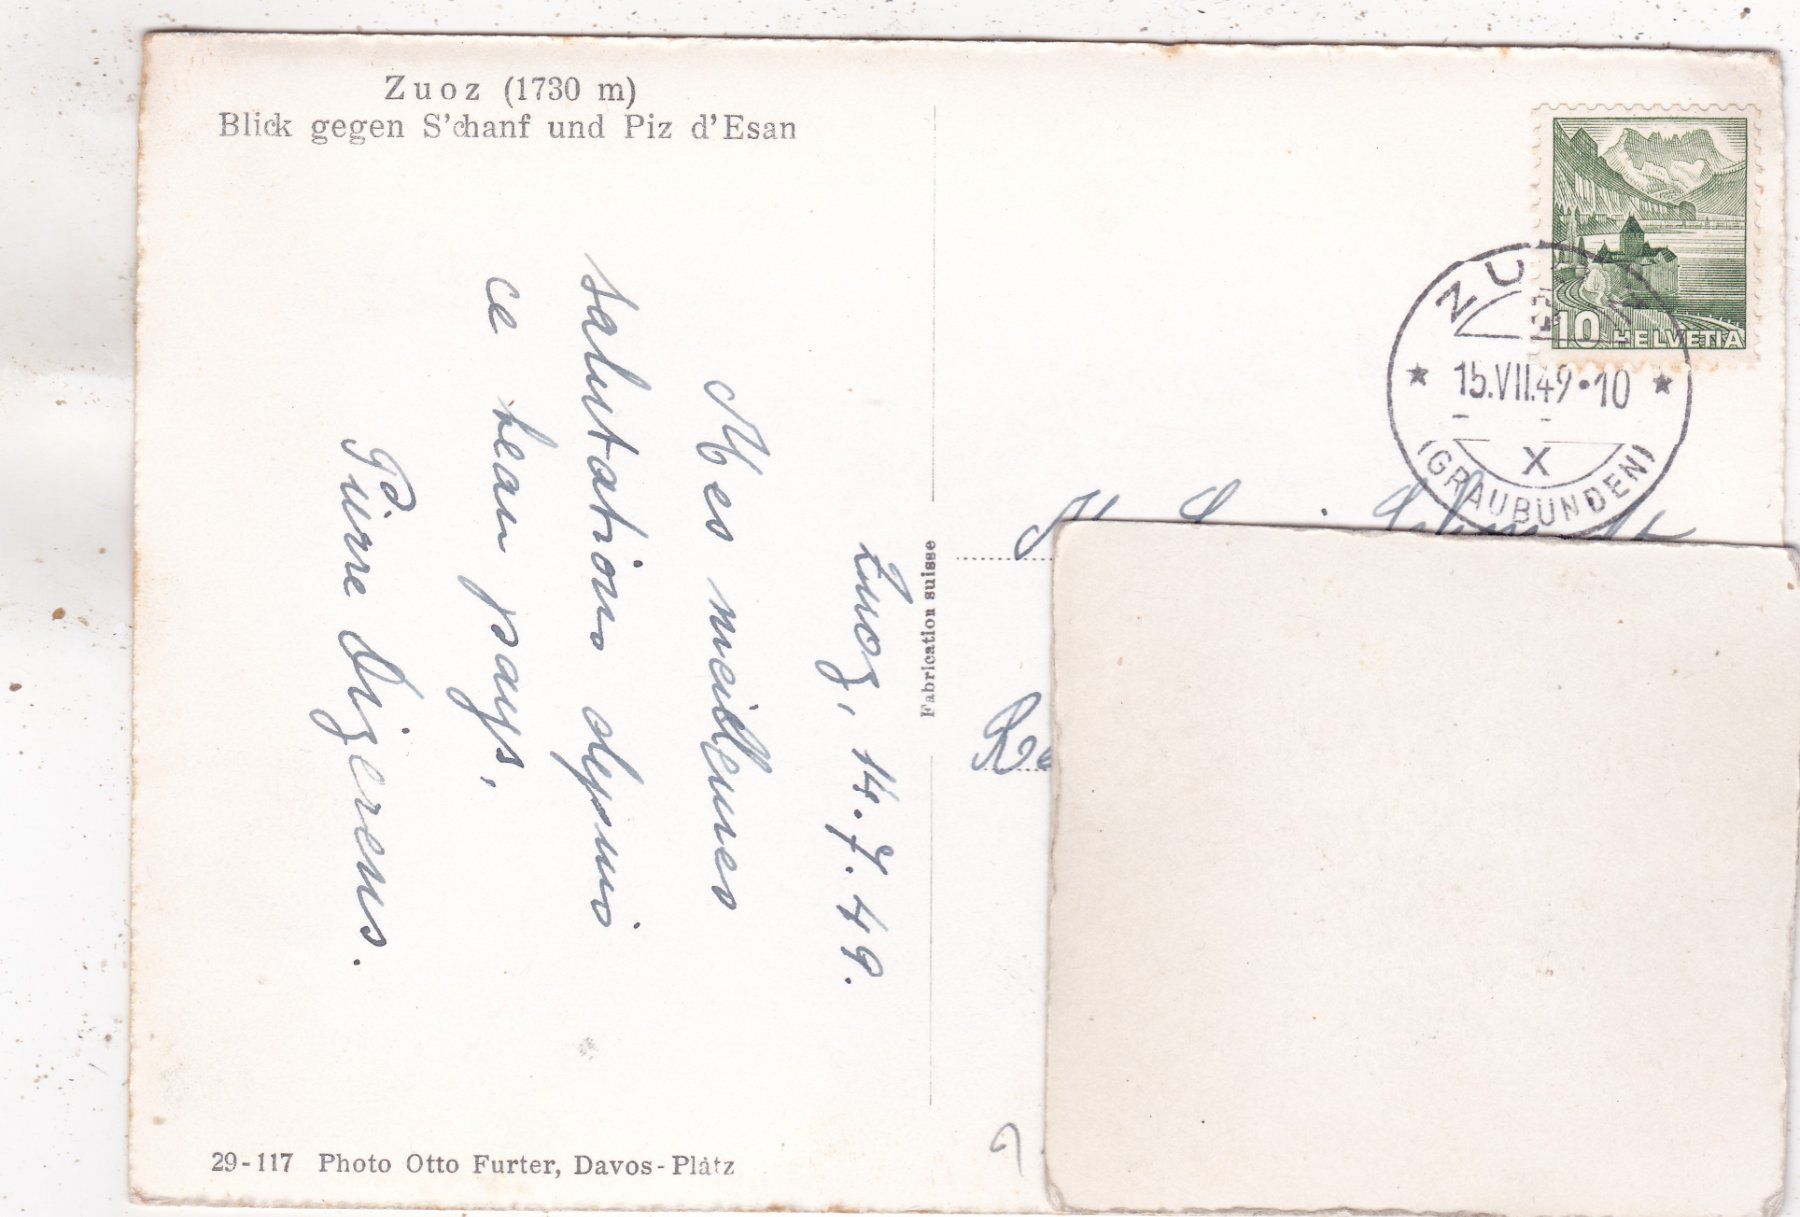 Zuoz (1730 m)
Blick gegen S'chanf und Piz d'Esan
Zuoz, 14.7.49.
Mes meilleures
salutations depuis
ce beau pays,
Pierre Dizerens.
29-117 Photo Otto Furter, Davos-Platz
Fabrication suisse
10 HELVETIA
ZUOZ
* 15.VII.49·10 *
X
(GRAUBÜNDEN)